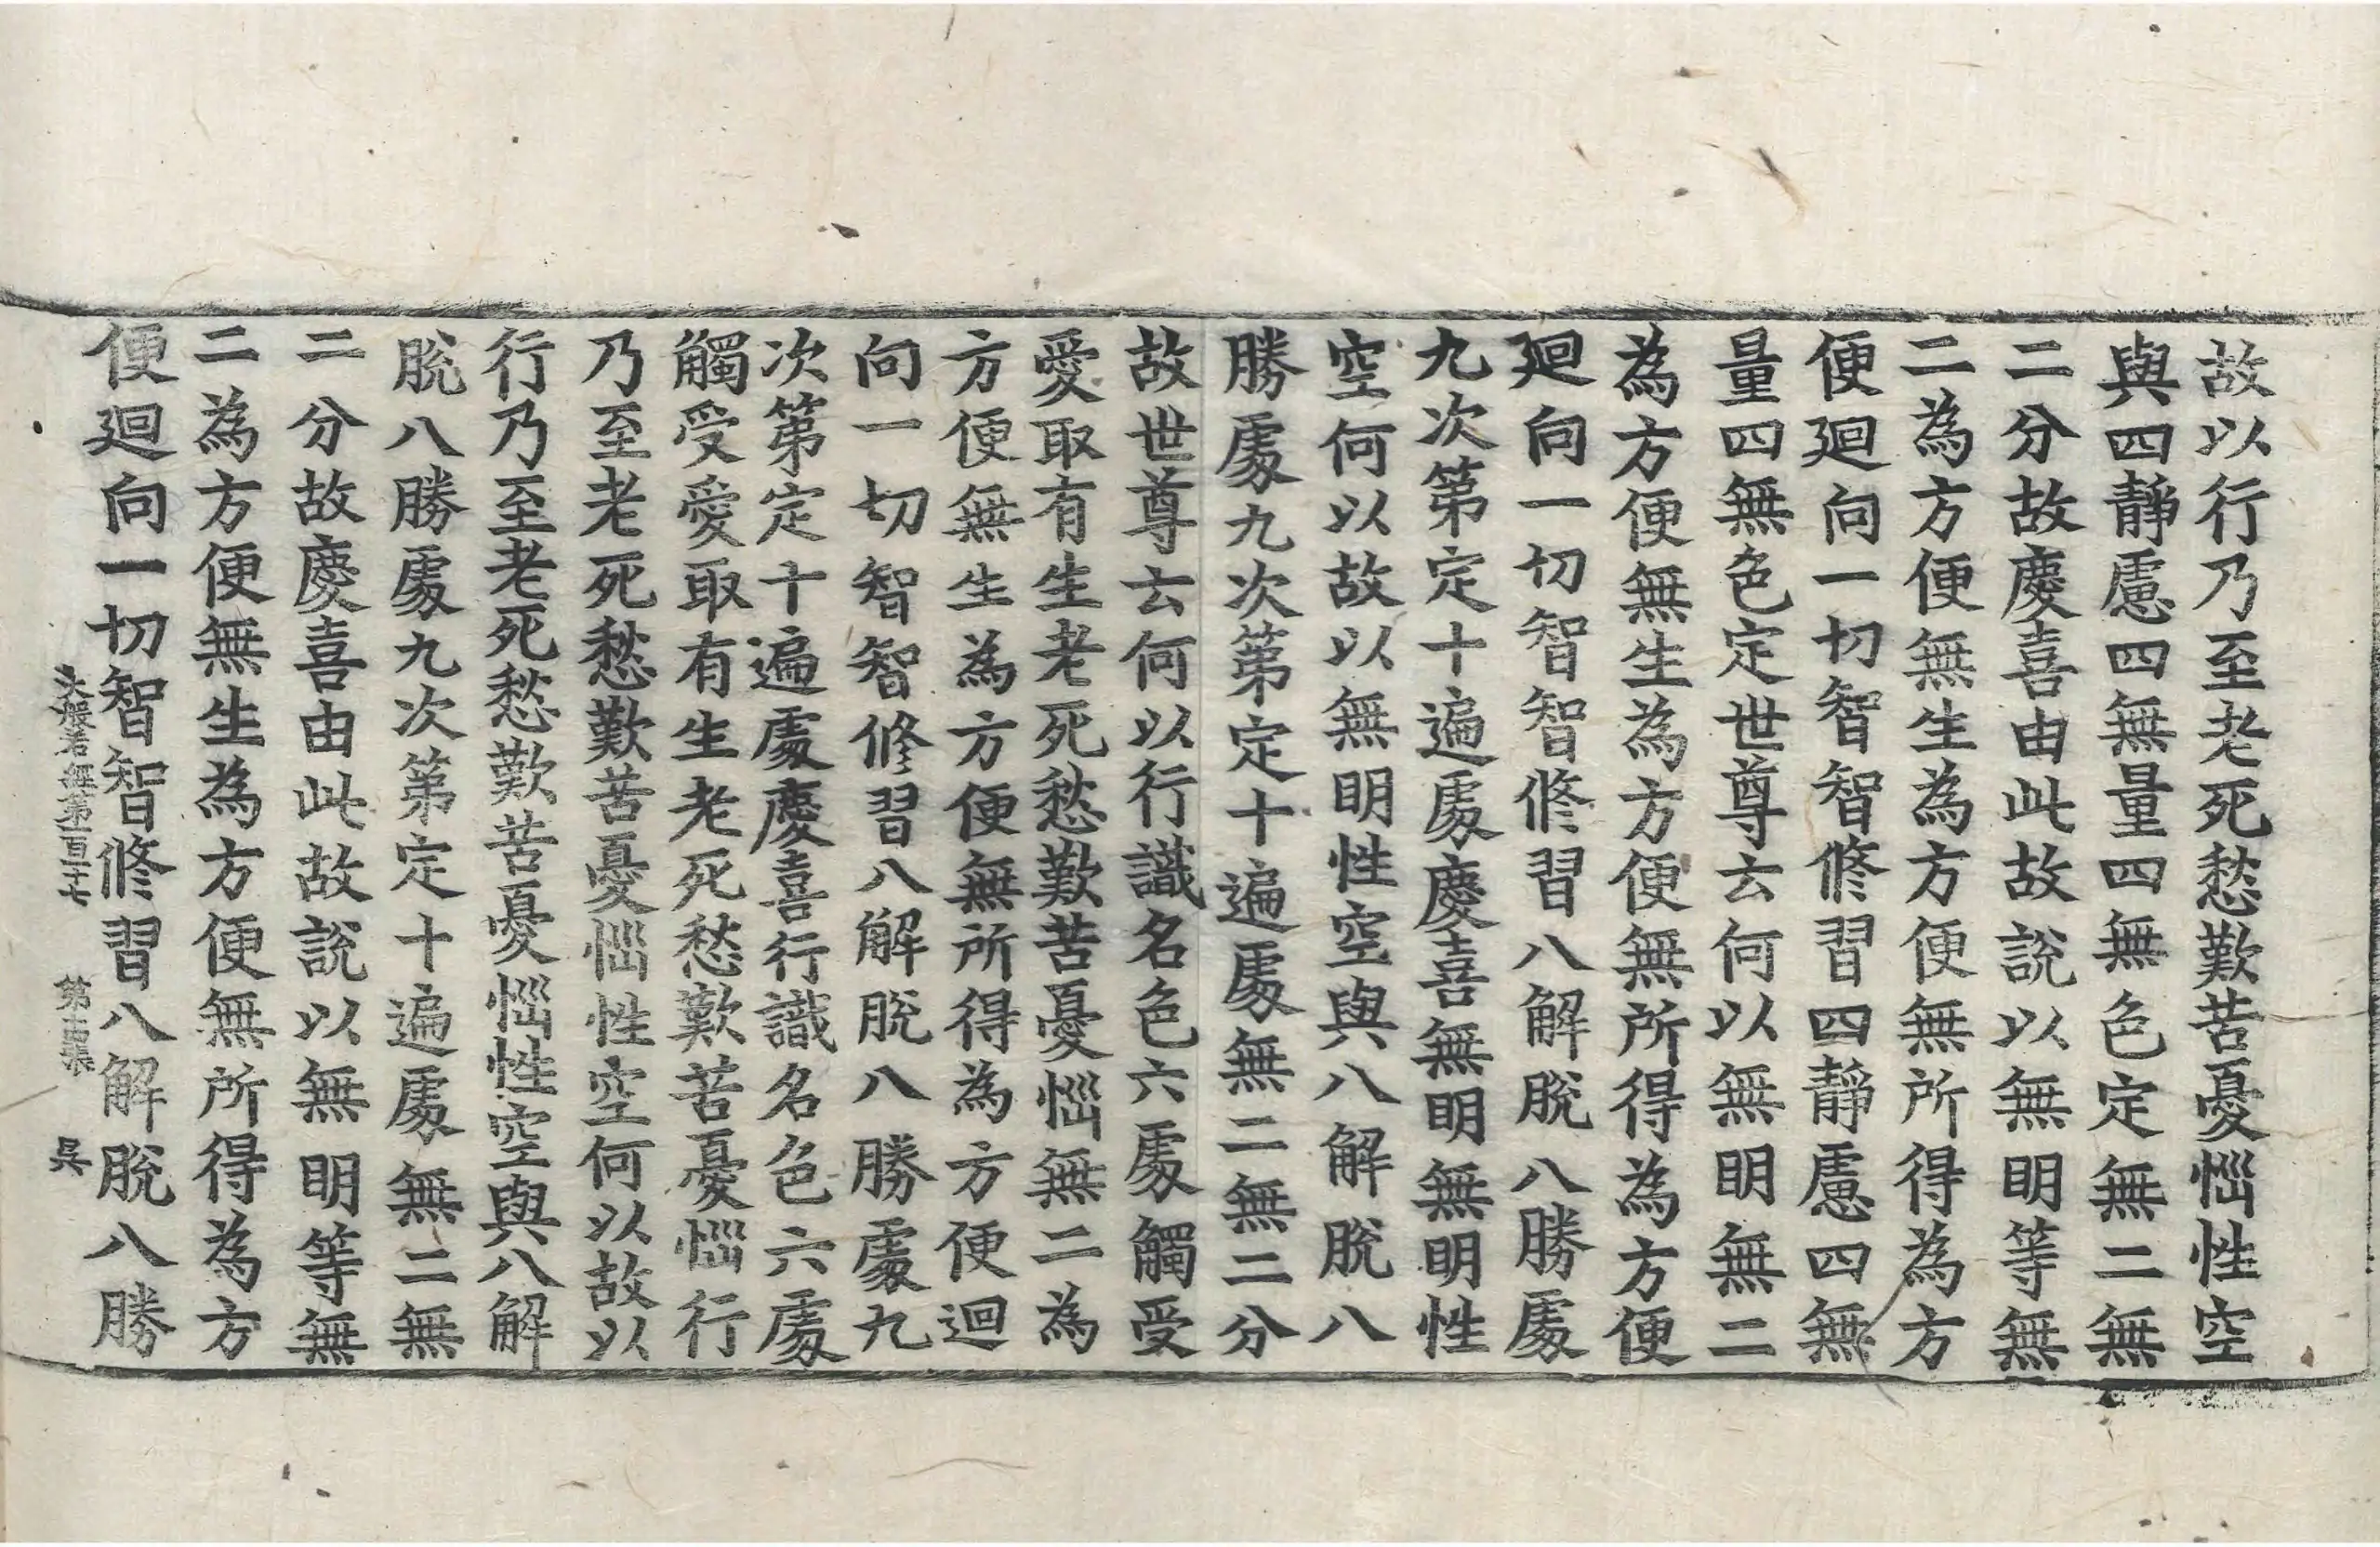 故以行乃至老死愁歎苦憂惱性空
與四靜慮四無量四無色定無二無
二分故慶喜由此故説以無明等無
二為方便無生為方便無所得為方
便廻向一切智智修習四靜慮四無
量四無色定世尊云何以無明無二
為方便無生為方便無所得為方便
廻向一切智智修習八解脫八勝處
九次第定十遍處慶喜無明無明性
空何以故以無明性空與八解脫八
勝處九次第定十遍處無二無二分
故世尊云何以行識名色六處觸受
愛取有生老死愁歎苦憂惱無二為
方便無生為方便無所得為方便迴
向一切智智修習八解脫八勝處九
次第定十遍處慶喜行識名色六處
觸受愛取有生老死愁歎苦憂惱行
乃至老死愁歎苦憂惱性空何以故以
行乃至老死愁歎苦憂惱性空與八解
脫八勝處九次第定十遍處無二無
二分故慶喜由此故説以無明等無
二為方便無生為方便無所得為方
便廻向一切智智修習八解脫八勝
大般若經第一百十七 第 張 吳